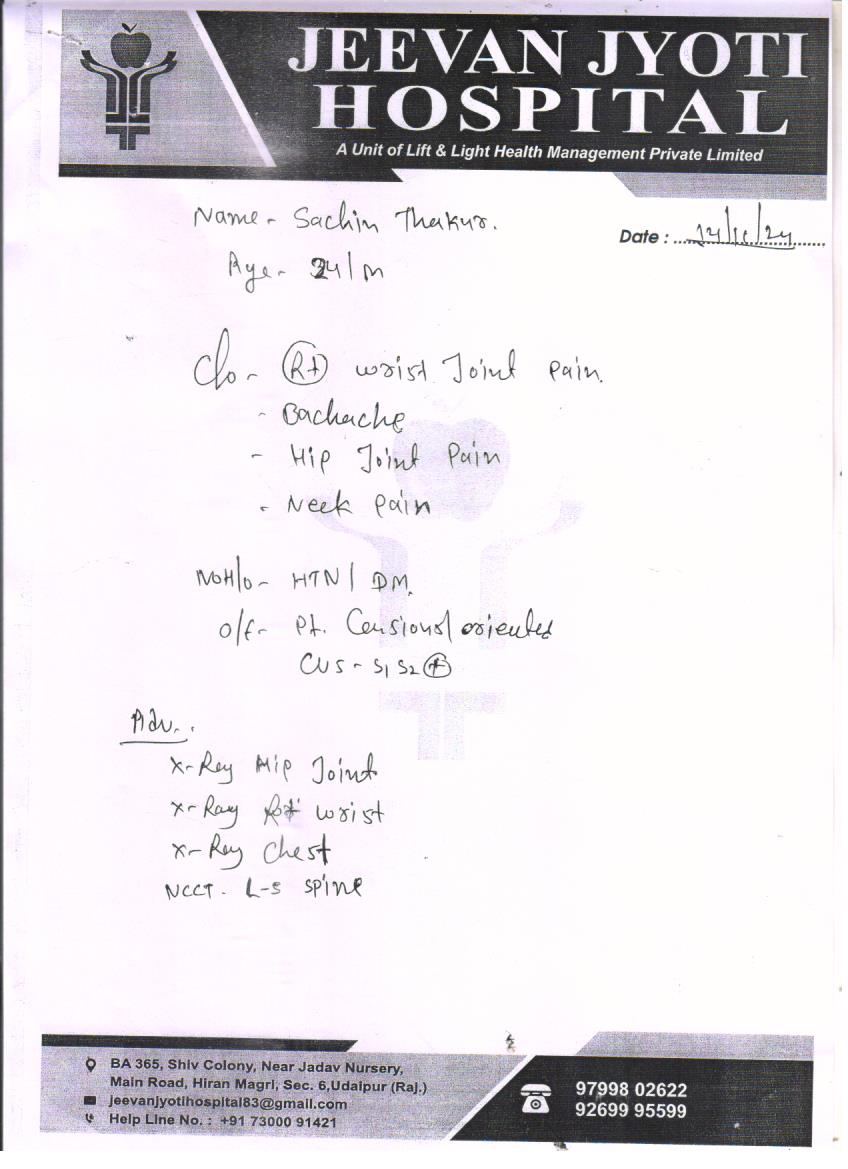 JEEVAN JYOTI
HOSPITAL
A Unit of Lift & Light Health Management Private Limited
Name - Sachin Thakur.
Date :
Age - 24/M
C/o - Rt wrist Joint pain.
- Backache
- Hip Joint Pain
- Neek pain
NoH/o - HTN / DM.
O/E - Pt. Consious/oriented
CVS - S1 S2 +
Adv. :
X-Ray Hip Joint
X-Ray Rt wrist
X-Ray Chest
NCCT - L-S Spine
BA 365, Shiv Colony, Near Jadav Nursery,
Main Road, Hiran Magri, Sec. 6,Udaipur (Raj.)
jeevanjyotihospital83@gmail.com
Help Line No. : +91 73000 91421
97998 02622
92699 95599